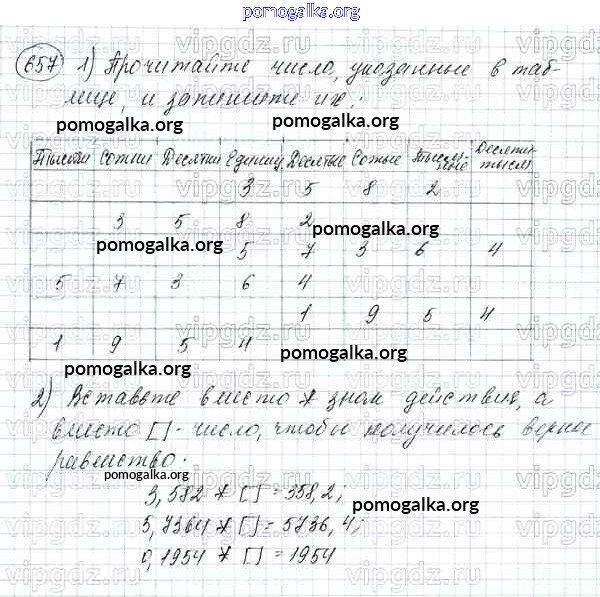 pomogalka.org
657 1) Прочитайте число, указанные в таб-
лице, и запишите их:
pomogalka.org pomogalka.org
Тысячи Сотни Десятки Единицы Десятые Сотые Тысячные Десятитысячн
3 5 8 2
3 5 8 2
pomogalka.org pomogalka.org
5 7 3 6 4
5 7 3 6 4
1 9 5 4
1 9 5 4
pomogalka.org pomogalka.org
2) Вставьте вместо * знак действия, а
вместо [] - число, чтобы получилось верное
равенство:
pomogalka.org
3,582 * [] = 358,2;
pomogalka.org
5,7364 * [] = 5736,4;
pomogalka.org
0,1954 * [] = 1954
vipgdz.ru